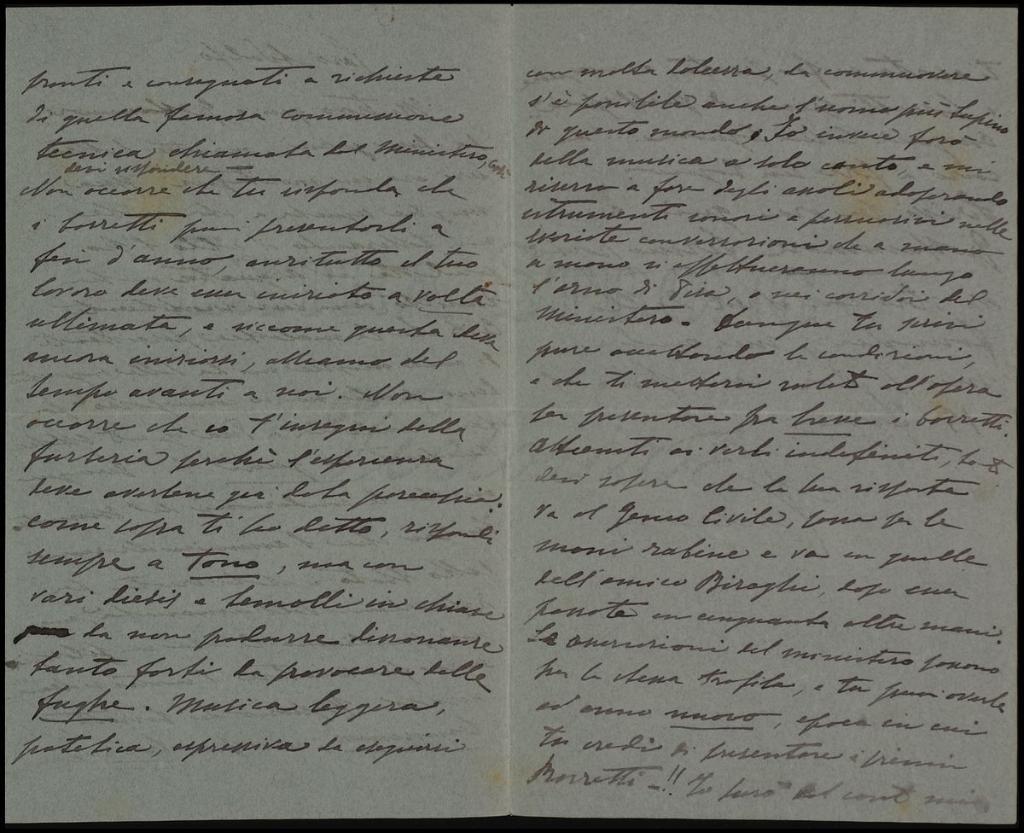 pronti e consegnati a richiesta
di quella famosa commissione
tecnica chiamata dal Ministero,
devi rispondere
Non occorre che tu risponda che
i bozzetti puoi presentarli a
fin d'anno, anzitutto il tuo
lavoro deve esser iniziato a volta
ultimata, e siccome questa deve
ancora iniziarsi, abbiamo del
tempo avanti a noi. Non
occorre che io t'insegni della
furberia perchè l'esperienza
deve avertene già data parecchia.
come sopra ti ho detto, rispondi
sempre a tono, ma con
vari diesis e bemolli in chiave
da non produrre dissonanze
tanto forti da provocare delle
fughe. Musica leggera,
patetica, espressiva da eseguirsi
con molta dolcezza, da commuovere
s'è possibile anche l'uomo più supino
di questo mondo. Io invece farò
della musica a solo canto, e mi
riservo a fare degli assoli adoperando
istrumenti sonori e persuasivi nelle
svariate conversazioni che a mano
a mano si effettueranno lungo
l'arno di Pisa, o nei corridoi del
Ministero. Dunque tu scrivi
pure accettando le condizioni,
e che ti metterai subito all'opera
per presentare fra breve i bozzetti.
Attienti ai verbi indefiniti, tu
devi sapere che la tua risposta
va al Genio Civile, passa per le
mani rabine e va in quelle
dell'amico Biraghi, dopo esser
passate in cinquanta altre mani.
Le osservazioni del ministero passano
per la stessa trafila, e tu puoi averle
ad anno nuovo, epoca in cui
tu credi di presentare i premi
Bozzetti -!! Io farò dal cont mio